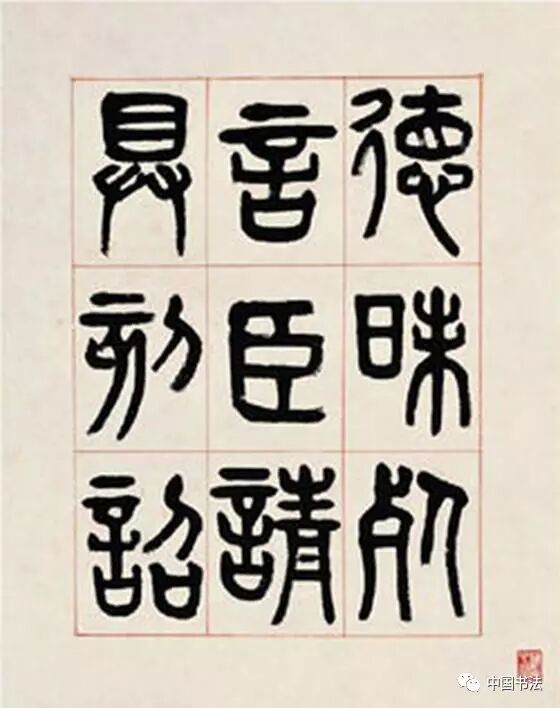 德昧死
言臣請
具刻詔
中国书法